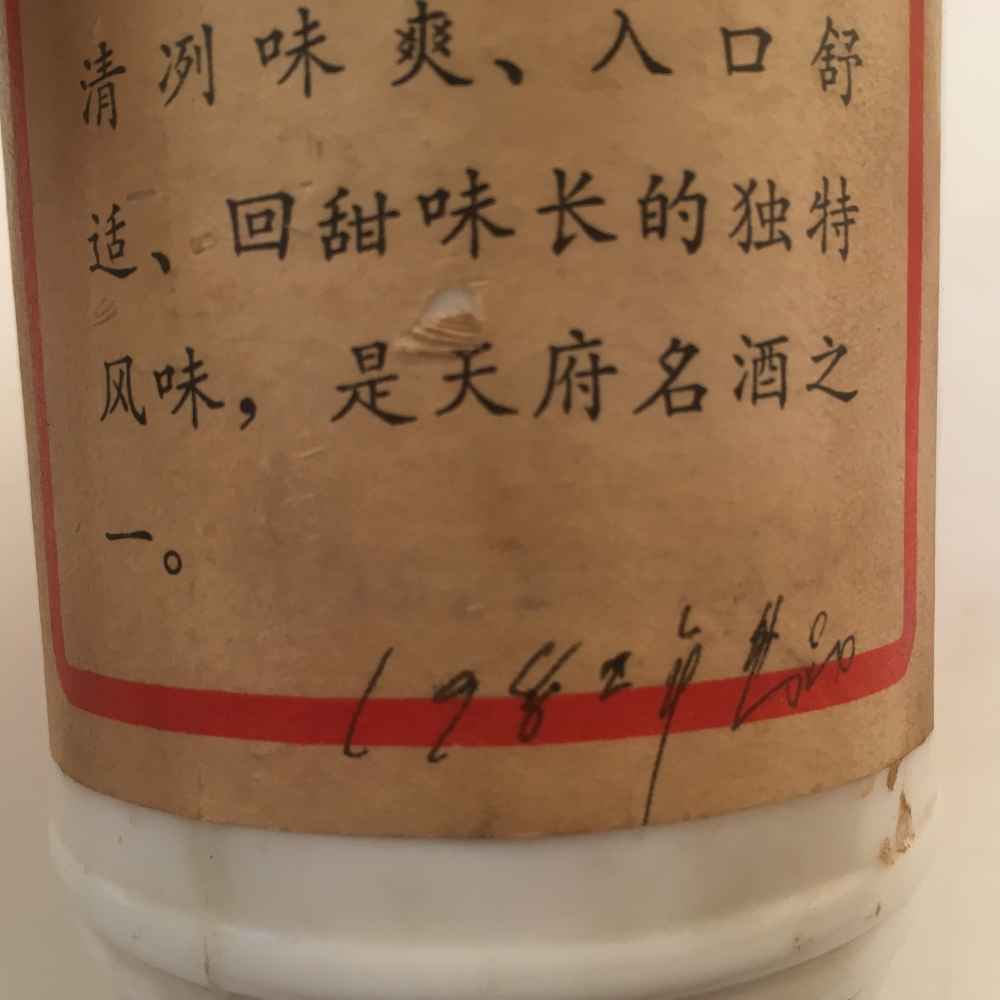 清冽味爽、入口舒
适、回甜味长的独特
风味，是天府名酒之
一。
198二年